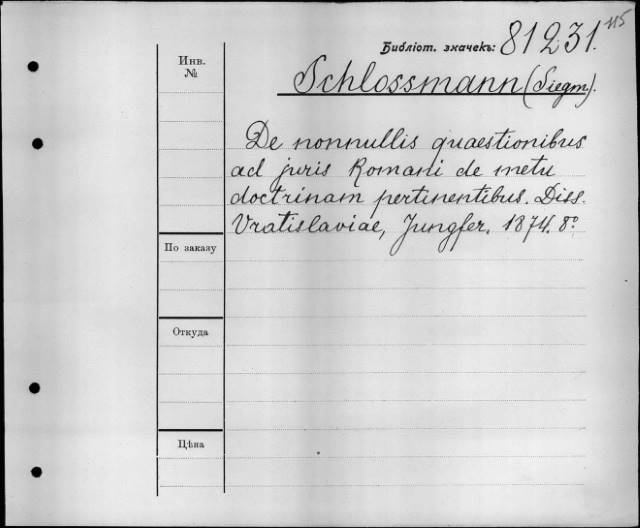 115
Библіот. значекъ: 81231.
Инв.
№
Schlossmann (Siegm).
De nonnullis quaestionibus
ad juris Romani de metu
doctrinam pertinentibus. Diss.
Vratislaviae, Jungfer. 1874. 8º
По заказу
Откуда
Цѣна